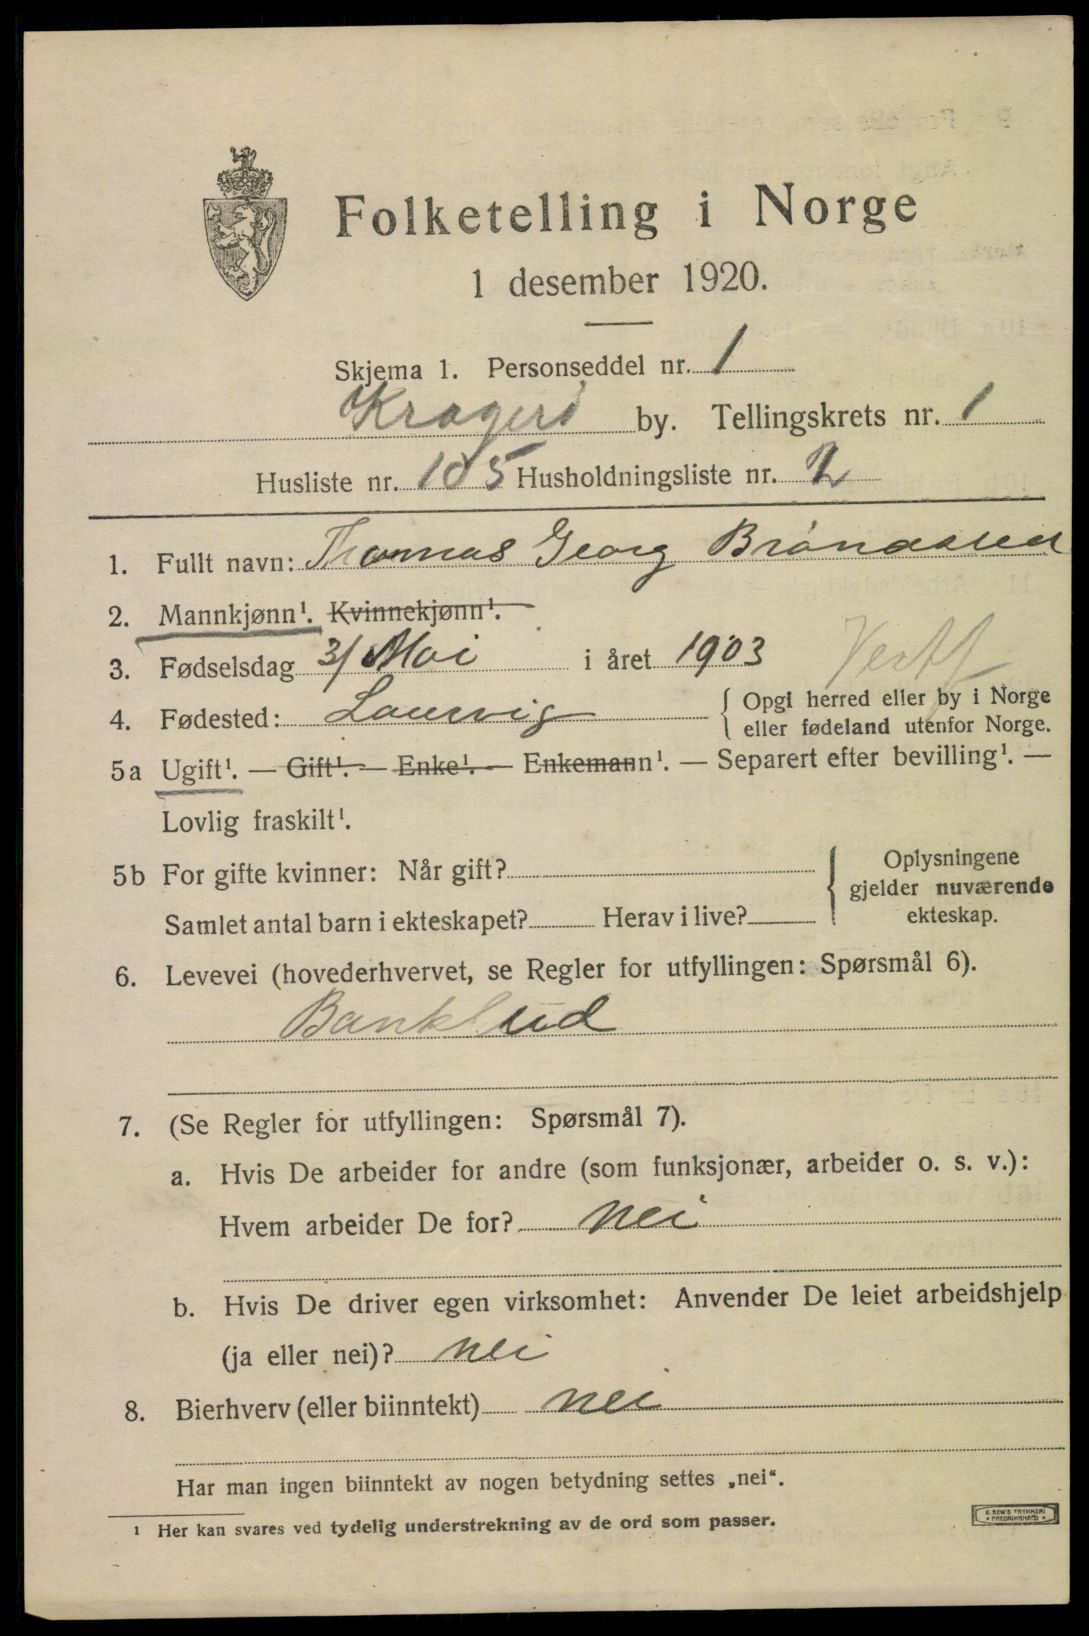 Folketelling i Norge
1 desember 1920.
Skjema 1. Personseddel nr. 1
Kragerö by. Tellingskrets nr. 1
Husliste nr. 105 Husholdningsliste nr. 2
1. Fullt navn: Thomas Georg Bröndalen
2. Mannkjønn¹. Kvinnekjønn¹.
3. Fødselsdag 3/ Mai i året 1903
Vestf
4. Fødested: Laurvig { Opgi herred eller by i Norge
eller fødeland utenfor Norge.
5a Ugift¹. — Gift¹. — Enke¹. — Enkemann¹. — Separert efter bevilling¹. —
Lovlig fraskilt¹.
5b For gifte kvinner: Når gift? { Oplysningene
gjelder nuværende
Samlet antal barn i ekteskapet? Herav i live? ekteskap.
6. Levevei (hovederhvervet, se Regler for utfyllingen: Spørsmål 6).
Bankbud
7. (Se Regler for utfyllingen: Spørsmål 7).
a. Hvis De arbeider for andre (som funksjonær, arbeider o. s. v.):
Hvem arbeider De for? nei
b. Hvis De driver egen virksomhet: Anvender De leiet arbeidshjelp
(ja eller nei)? nei
8. Bierhverv (eller biinntekt) nei
Har man ingen biinntekt av nogen betydning settes „nei“.
¹ Her kan svares ved tydelig understrekning av de ord som passer.
E. SEM'S TRYKKERI
FREDRIKSHALD